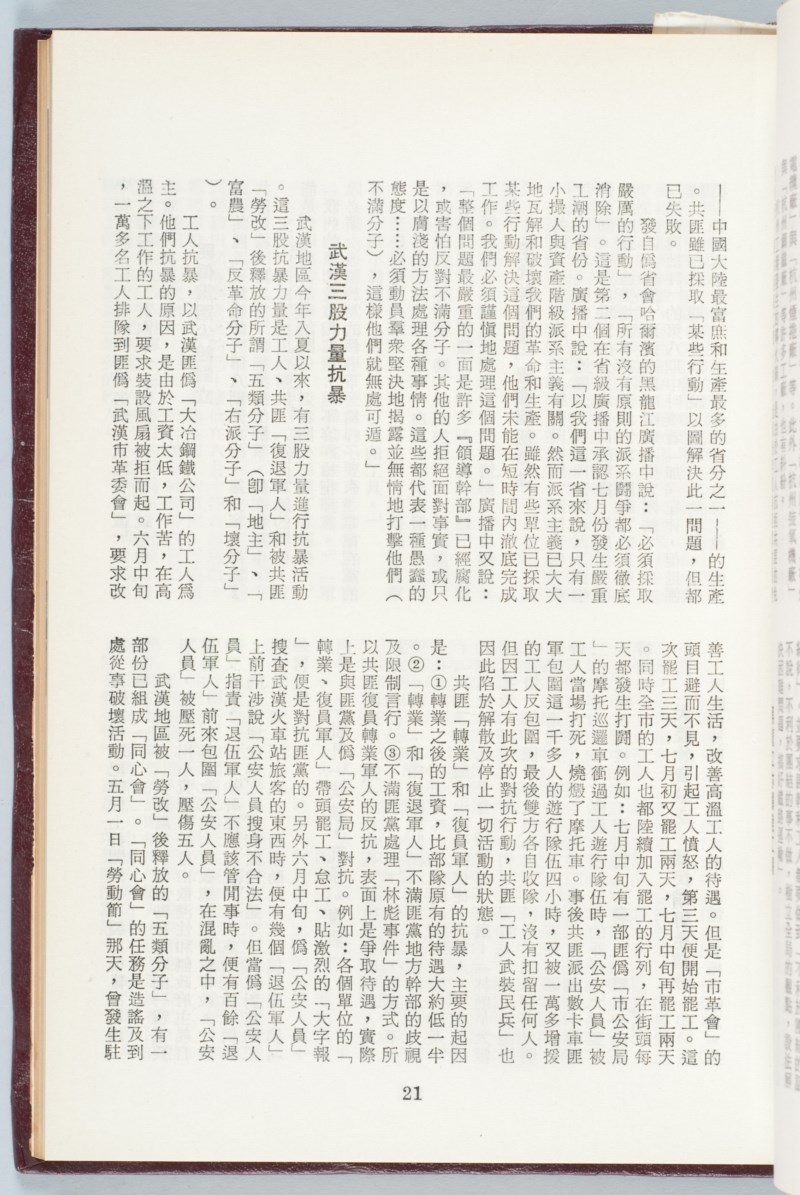 ——中國大陸最富庶和生產最多的省分之一——的生產
。共匪雖已採取「某些行動」以圖解決此一問題，但都
已失敗。
發自僞省會哈爾濱的黑龍江廣播中說：「必須採取
嚴厲的行動」，「所有沒有原則的派系鬪爭都必須徹底
消除」。這是第二個在省級廣播中承認七月份發生嚴重
工潮的省份。廣播中說：「以我們這一省來說，只有一
小撮人與資產階級派系主義有關。然而派系主義已大大
地瓦解和破壞我們的革命和生產。雖然有些單位已採取
某些行動解決這個問題，他們未能在短時間內澈底完成
工作。我們必須謹愼地處理這個問題。」廣播中又說：
「整個問題最嚴重的一面是許多『領導幹部』已經腐化
，或害怕反對不滿分子。其他的人拒絕面對事實，或只
是以膚淺的方法處理各種事情。這些都代表一種愚蠢的
態度……必須動員羣衆堅決地揭露並無情地打擊他們（
不滿分子），這樣他們就無處可遁。」
武漢三股力量抗暴
武漢地區今年入夏以來，有三股力量進行抗暴活動
。這三股抗暴力量是工人、共匪「復退軍人」和被共匪
「勞改」後釋放的所謂「五類分子」（卽「地主」、「
富農」、「反革命分子」、「右派分子」和「壞分子」
）。
工人抗暴，以武漢匪僞「大冶鋼鐵公司」的工人爲
主。他們抗暴的原因，是由於工資太低，工作苦，在高
溫之下工作的工人，要求裝設風扇被拒而起。六月中旬
，一萬多名工人排隊到匪僞「武漢市革委會」，要求改
善工人生活，改善高溫工人的待遇。但是「市革會」的
頭目避而不見，引起工人憤怒，第三天便開始罷工。這
次罷工三天，七月初又罷工兩天，七月中旬再罷工兩天
。同時全市的工人也都陸續加入罷工的行列，在街頭每
天都發生打鬪。例如：七月中旬有一部匪僞「市公安局
」的摩托巡邏車衝過工人遊行隊伍時，「公安人員」被
工人當場打死，燒燬了摩托車。事後共匪派出數卡車匪
軍包圍這一千多人的遊行隊伍四小時，又被一萬多增援
的工人反包圍，最後雙方各自收隊，沒有扣留任何人。
但因工人有此次的對抗行動，共匪「工人武裝民兵」也
因此陷於解散及停止一切活動的狀態。
共匪「轉業」和「復員軍人」的抗暴，主要的起因
是：①轉業之後的工資，比部隊原有的待遇大約低一半
。②「轉業」和「復退軍人」不滿匪黨地方幹部的歧視
及限制言行。③不滿匪黨處理「林彪事件」的方式。所
以共匪復員轉業軍人的反抗，表面上是爭取待遇，實際
上是與匪黨及僞「公安局」對抗。例如：各個單位的「
轉業、復員軍人」帶頭罷工、怠工、貼激烈的「大字報
」，便是對抗匪黨的。另外六月中旬，僞「公安人員」
搜查武漢火車站旅客的東西時，便有幾個「退伍軍人」
上前干涉說「公安人員搜身不合法」。但當僞「公安人
員」指責「退伍軍人」不應該管閒事時，便有百餘「退
伍軍人」前來包圍「公安人員」，在混亂之中，「公安
人員」被壓死一人，壓傷五人。
武漢地區被「勞改」後釋放的「五類分子」，有一
部份已組成「同心會」。「同心會」的任務是造謠及到
處從事破壞活動。五月一日「勞動節」那天，曾發生駐
21